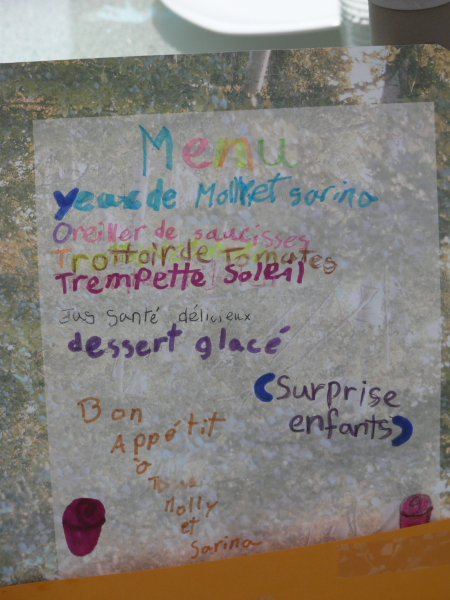 Menu
Yeux de Molly et sarina
Oreiller de saucisses
Trottoir de Tomates
Trempette Soleil
Jus santé délicieux
dessert glacé
(Surprise
enfants)
Bon
Appétit
à
Tous
Molly
et
Sarina